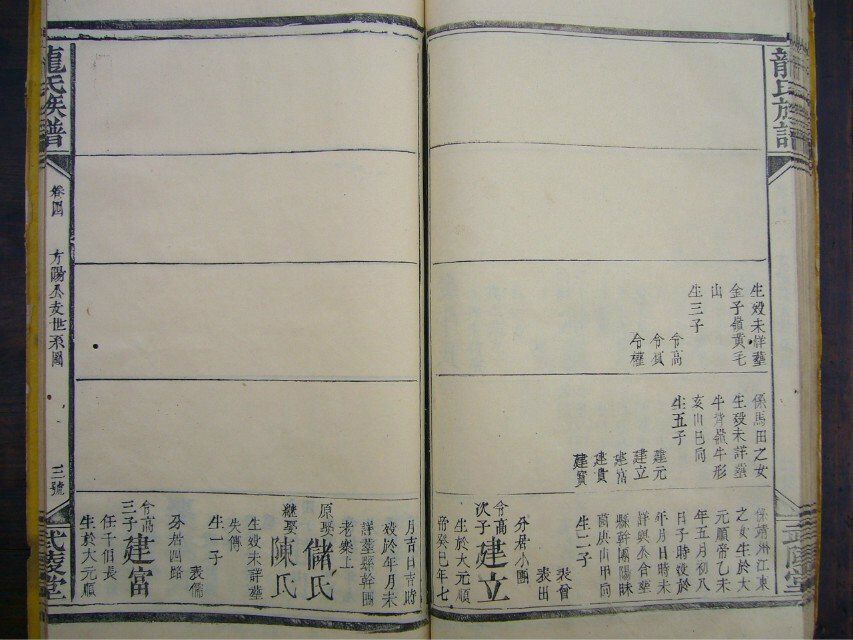 龍氏族譜
生歿未詳塟
金子嶺黄毛
山
生三子
令高
令貭
令權
係馬田之女
生歿未詳塟
牛背嶺牛形
亥山巳向
生五子
建元
建立
建富
建貴
建寳
係湖湘江東
之女生於大
元順帝乙未
年五月初八
日子時歿於
年月日時未
詳與丞合塟
縣幹團陽昧
岡庚山甲向
生二子
表曾
表田
分居小團
令高
次子
建立
生於大元順
帝癸巳年七
武陵堂
月吉日吉時
歿於年月未
詳塟縣幹團
老樂上
原娶
儲氏
繼娶
陳氏
生歿未詳塟
失傳
生一子
表儒
分居四路
令高
三子
建富
任千伯長
生於大元順
龍氏族譜
卷四
世系圖
三號
武陵堂